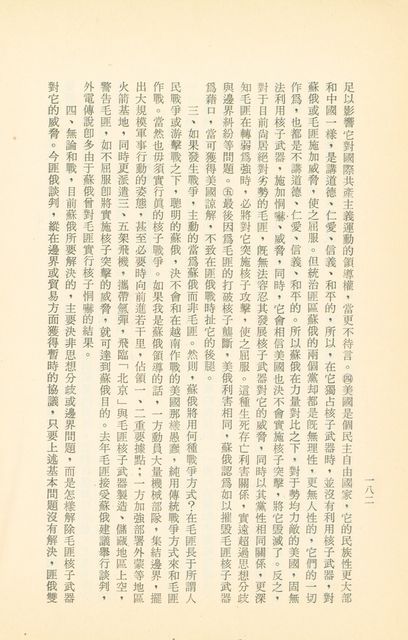 一八二
足以影響它對國際共產主義運動的領導權，當更不待言。㈣美國是個民主自由國家，它的民族性更大部
和中國一樣，是講道德、仁愛、信義、和平的。所以，在它獨占核子武器時，並沒有利用核子武器，對
蘇俄或毛匪施加威脅，使之屈服。但統治匪區蘇俄的兩個黨却都是旣無理性，更無人性的，它們的一切
作為，也都是不講道德、仁愛、信義、和平的。所以蘇俄在力量對比之下，對于勢均力敵的美國，固無
法利用核子武器，施加恫嚇、威脅，同時，它會相信美國也決不會實施核子突擊，將它毀滅了。反之，
對于目前尚居絕對劣勢的毛匪，旣無法容忍其發展核子武器對它的威脅，同時以其黨性相同關係，更深
知毛匪在轉弱為強時，必將對它突施核子攻擊，使之屈服。這種生死存亡利害關係，實遠超過思想分歧
與邊界糾紛等問題。㈤最後因為毛匪的打破核子壟斷，美俄利害相同，蘇俄認為如以摧毀毛匪核子武器
為藉口，當可獲得美國諒解，不致在匪俄戰時扯它的後腿。
三、如果發生戰爭，主動的當為蘇俄而非毛匪。然則，蘇俄將用何種戰爭方式？在毛匪長于所謂人
民戰爭或游擊戰之下，聰明的蘇俄，決不會和在越南作戰的美國那樣愚蠢，純用傳統戰爭方式來和毛匪
作戰。當然也毋須實行眞的核子戰爭。如果我是蘇俄領導的話，一方動員大量機械部隊，集結邊界，擺
出大規模軍事行動的姿態，甚至必要時向前進若干里，佔領一、二重要據點；一方加強部署外蒙等地區
火箭基地，同時更派遣三、五架飛機，攜帶氫彈，飛臨「北京」與毛匪核子武器製造、儲藏地區上空，
警告毛匪，如不屈服卽將實施核子突擊的威脅，就可達到蘇俄目的。去年毛匪接受蘇俄建議舉行談判，
外電傳說卽多由于蘇俄曾對毛匪實行核子恫嚇的結果。
四、無論和戰，目前蘇俄所要解決的，主要決非思想分歧或邊界問題，而是怎樣解除毛匪核子武器
對它的威脅。今匪俄談判，縱在邊界或貿易方面獲得暫時的協議，只要上述基本問題沒有解決，匪俄雙